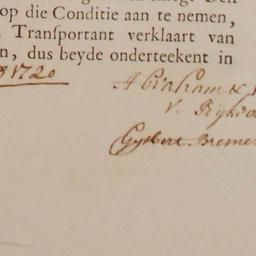 op die Conditie aan te nemen,
Transportant verklaart van
n, dus beyde onderteekent in
1720
Abraham
v.
Gysbert Bremer